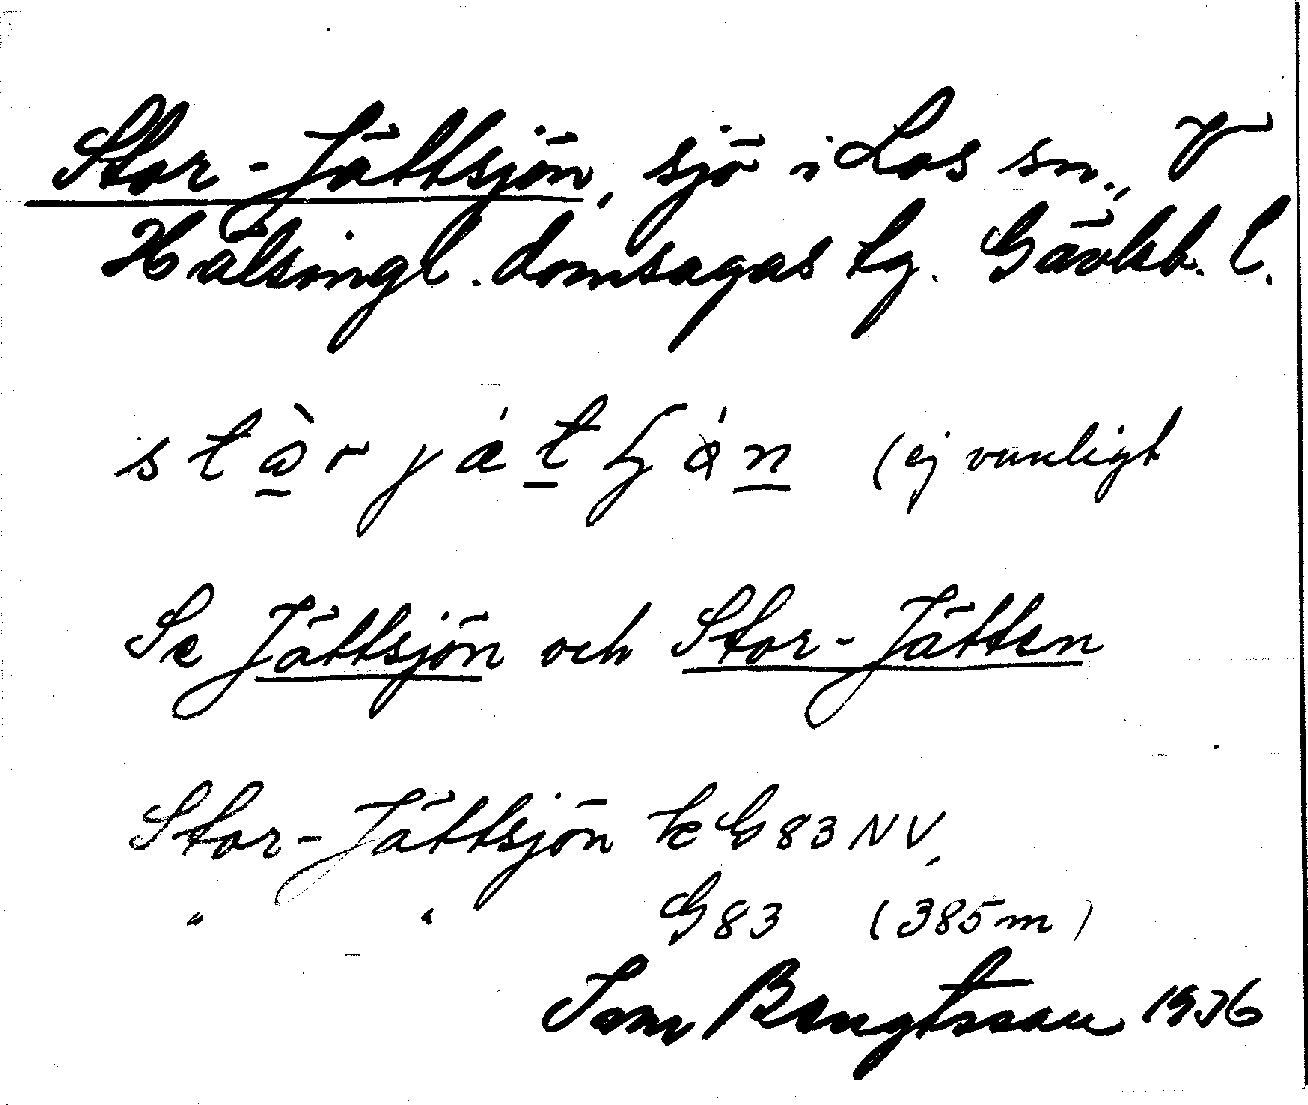 Stor-Jättsjön, sjö i Los sn., V
Hälsingl. domsagas tg. Gävleb. l.
(ej vanligt
Se Jättsjön och Stor-Jätten
Stor-Jättsjön kG83NV,
" " G83 (385m)
Bengtsson 1936